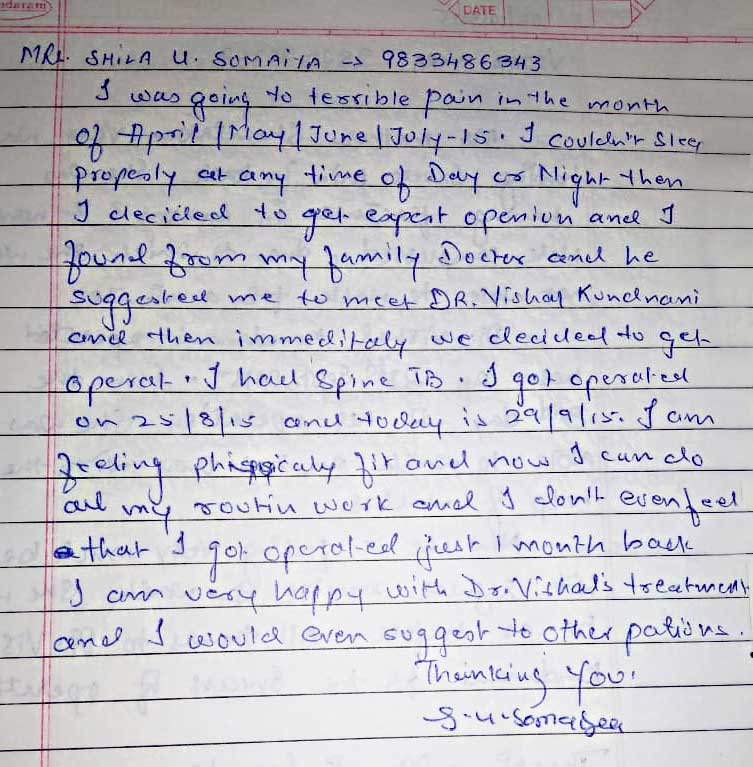 ndaram
DATE
MRS. SHILA U. SOMAIYA -> 9833486343
I was going to terrible pain in the month
of April / May / June / July-15. I couldn't sleep
properly at any time of Day or Night then
I decided to get expert openiun and I
found from my family Doctor and he
suggested me to meet DR. Vishal Kundnani
and then immeditaly we decided to get
operat. I had Spine TB. I got operated
on 25/8/15 and today is 29/9/15. I am
feeling phispicaly fit and now I can do
all my routin work and I don't even feel
that I got operated just 1 month back
I am very happy with Dr. Vishal's treatment
and I would even suggest to other pations.
Thanking You.
S. U. Somaiya